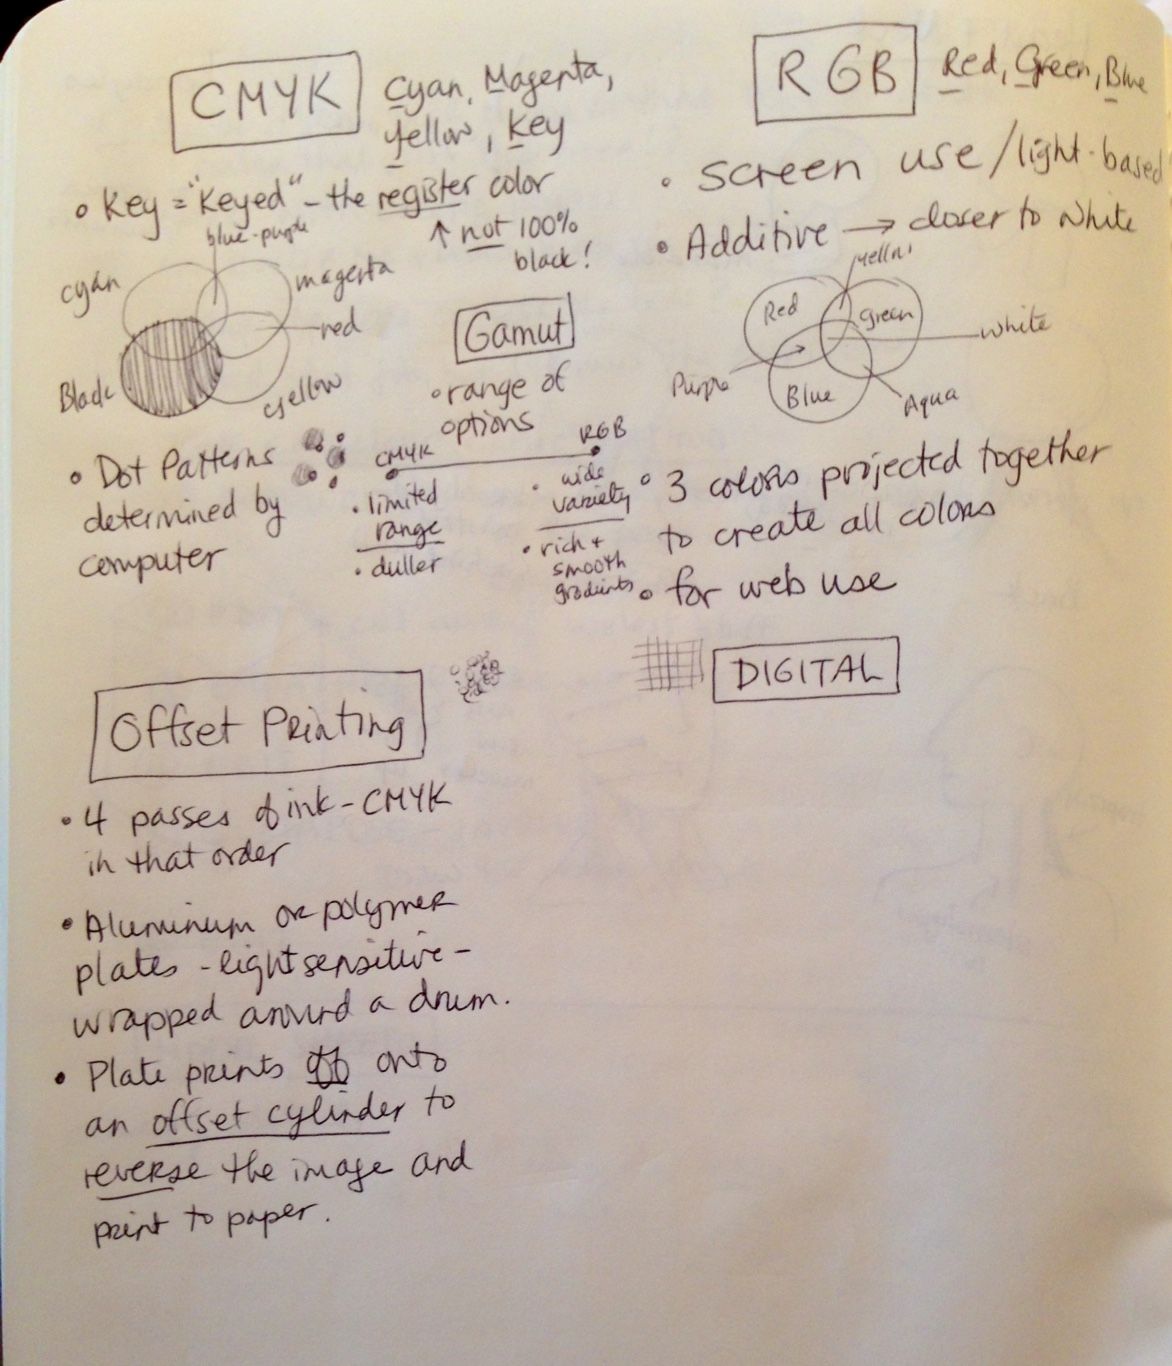 CMYK
Cyan, Magenta,
Yellow, Key
• Key = "Keyed" - the register color
↑ not 100%
black!
blue-purple
cyan
magenta
red
Black
yellow
• Dot Patterns
determined by
computer
Gamut
• range of
options
CMYK
RGB
• limited
range
• duller
• wide
variety
• rich +
smooth
gradients
RGB
Red, Green, Blue
• Screen use/light-based
• Additive → closer to white
yellow
Red
Green
white
Purple
Blue
Aqua
• 3 colors projected together
to create all colors
• for web use
Offset Printing
• 4 passes of ink - CMYK
in that order
• Aluminum or polymer
plates - light sensitive -
wrapped around a drum.
• Plate prints off onto
an offset cylinder to
reverse the image and
print to paper.
DIGITAL